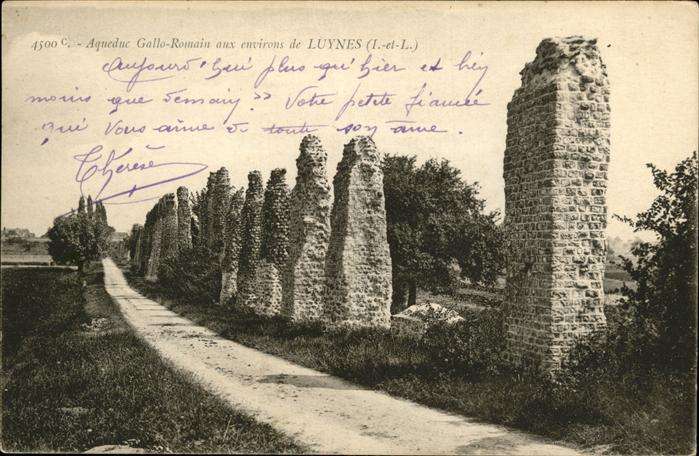 4500 C. - Aqueduc Gallo-Romain aux environs de LUYNES (I.-et-L.)
Aujourd'hui plus qu'hier et bien
moins que demain. » Votre petite fiancée
qui vous aime de toute son âme.
Thérèse